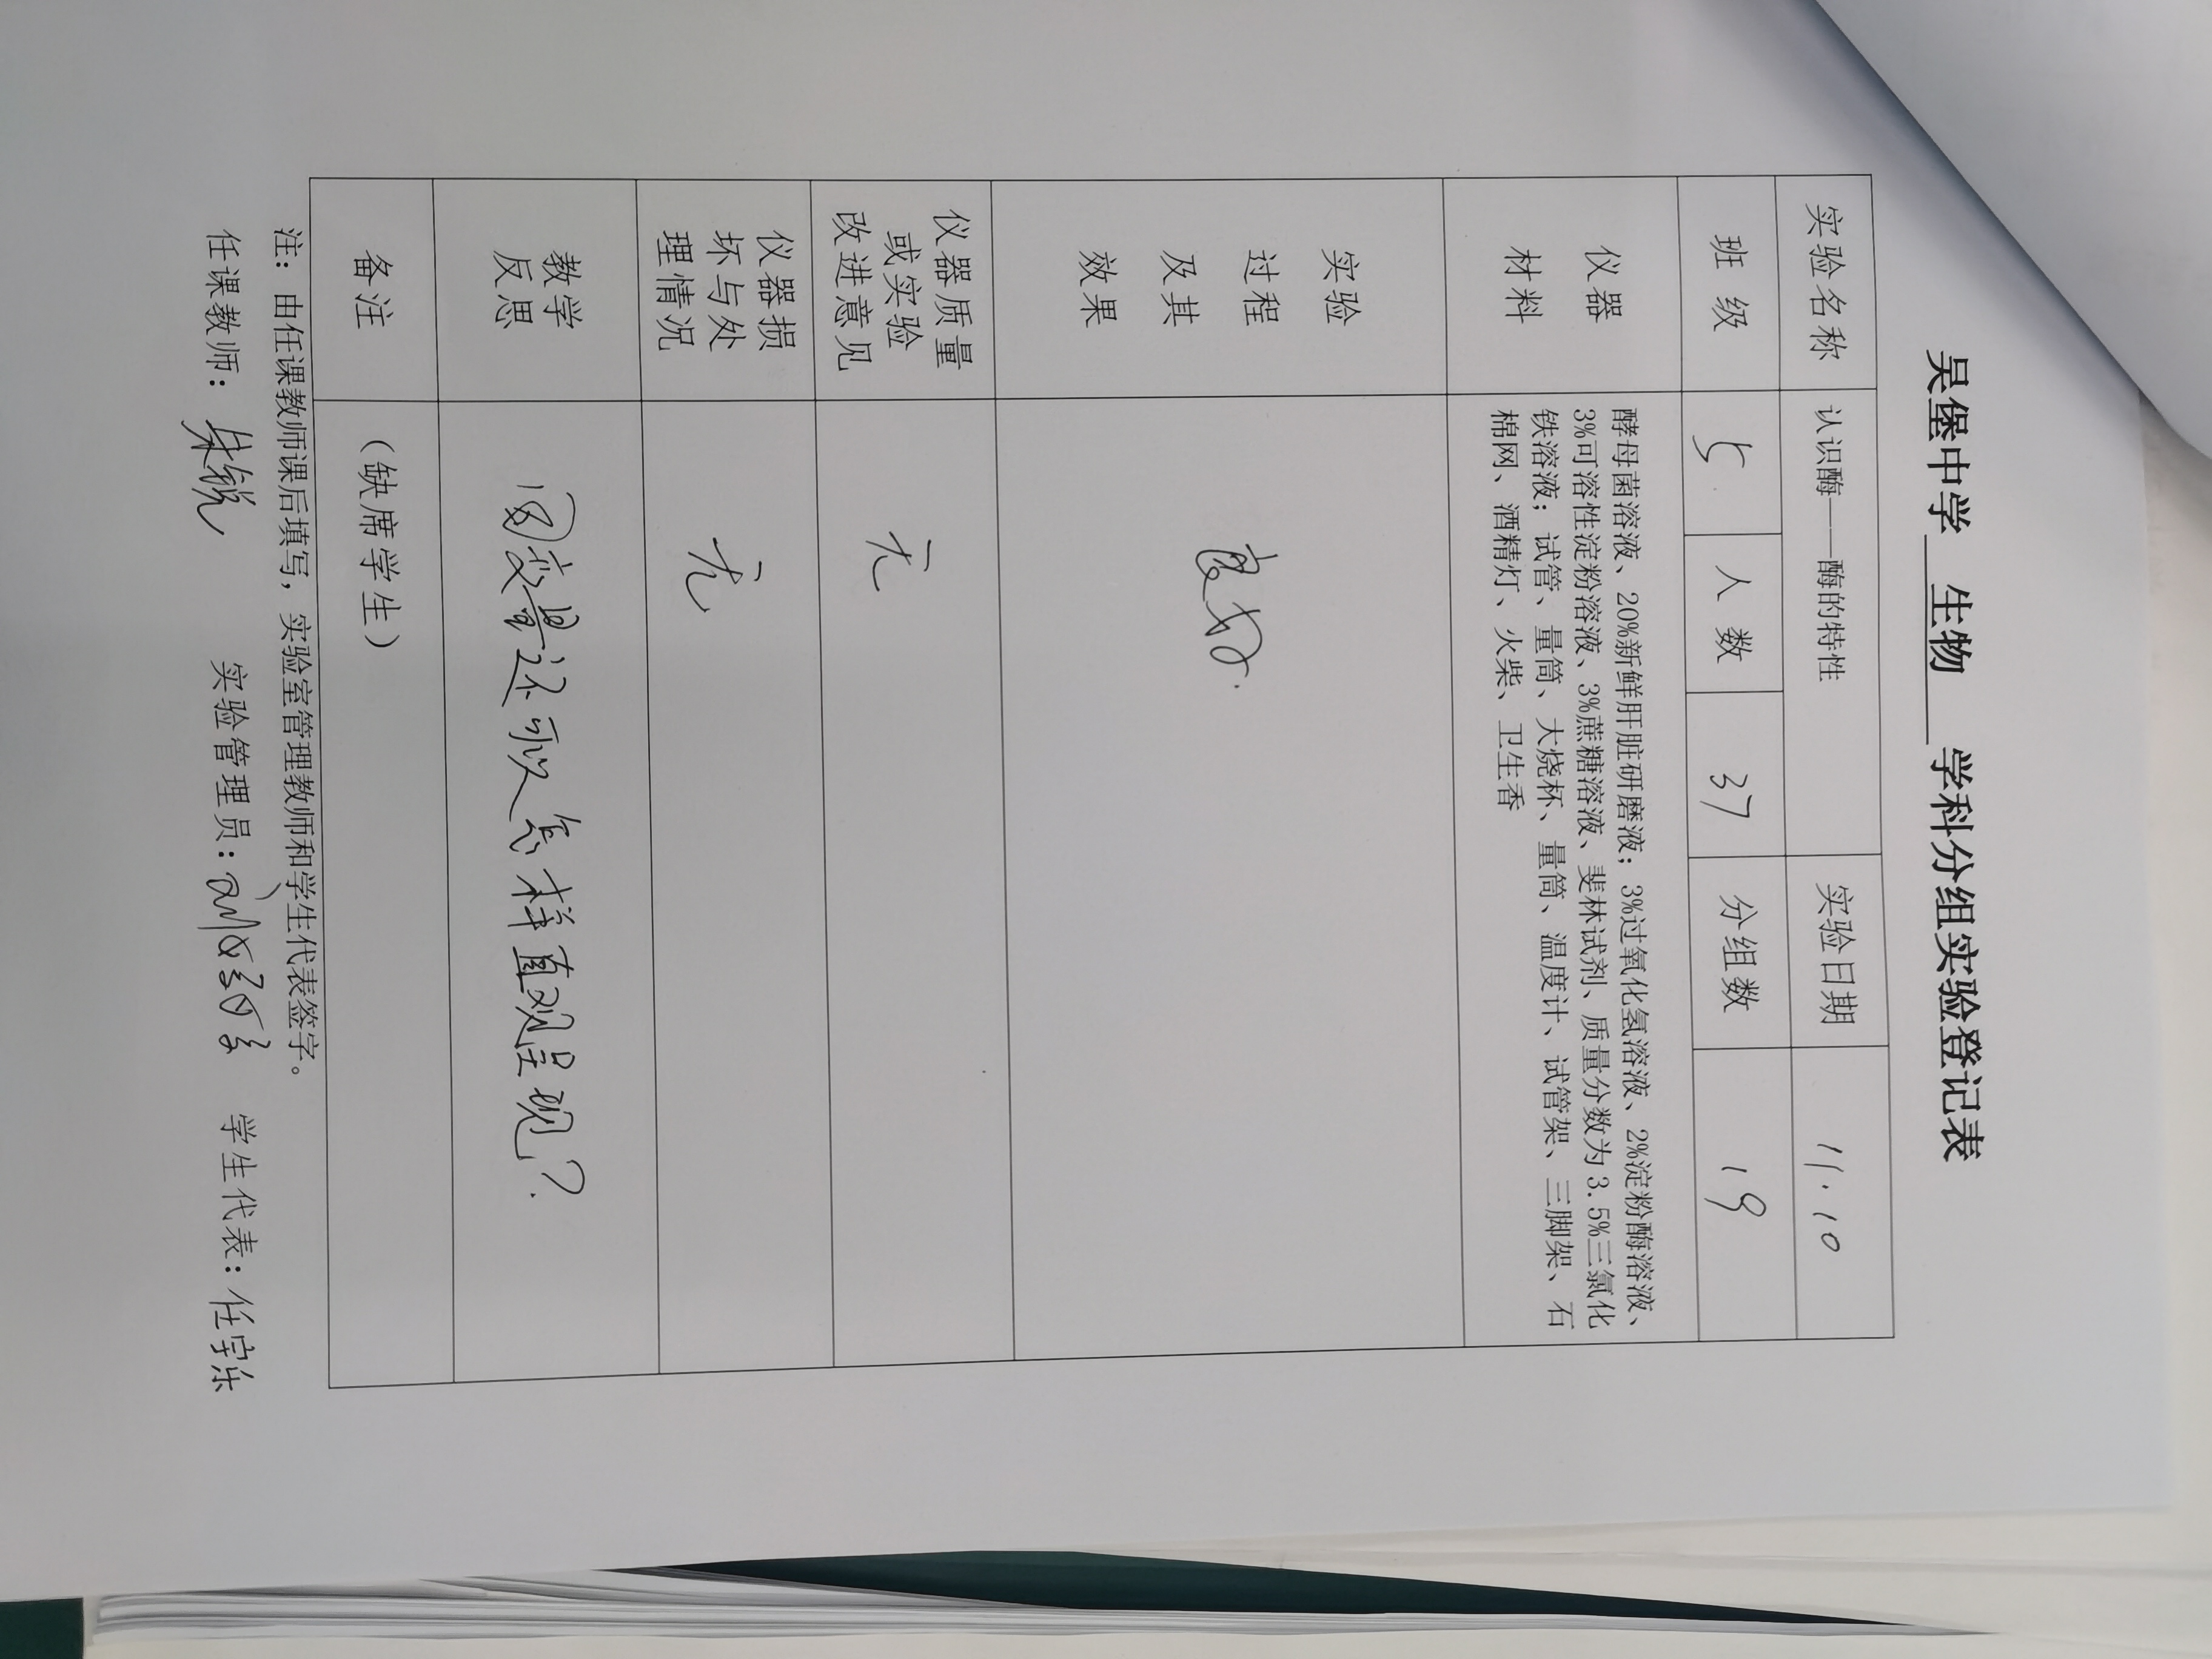 吴堡中学 生物 学科分组实验登记表
实验名称 认识酶——酶的特性 实验日期 11.10
班级 5. 人数 37 分组数 19
仪器
材料
酵母菌溶液、20%新鲜肝脏研磨液;3%过氧化氢溶液、2%淀粉酶溶液、
3%可溶性淀粉溶液、3%蔗糖溶液、斐林试剂、质量分数为3.5%三氯化
铁溶液;试管、量筒、大烧杯、量筒、温度计、试管架、三脚架、石
棉网、酒精灯、火柴、卫生香
实验
过程
及其
效果
良好.
仪器质量
或实验
改进意见
无
仪器损
坏与处
理情况
无
教学
反思
因变量还可以怎样直观呈现?
备注 (缺席学生)
注:由任课教师课后填写,实验室管理教师和学生代表签字。
任课教师:朱锐 实验管理员: 学生代表:任宇乐